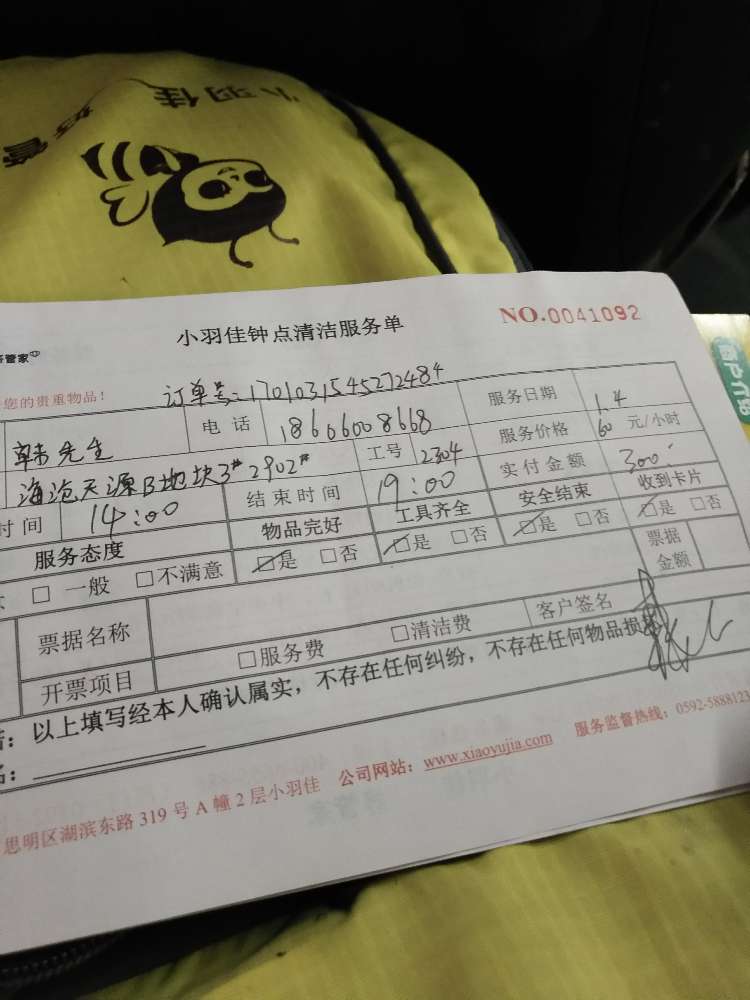 小羽佳
好管
小羽佳钟点清洁服务单
NO.0041092
好管家
您的贵重物品！
订单号:1701031545272484
韩先生
电话
18606008668
服务日期
1.4
海沧天源B地块3#2902#
工号
2304
服务价格
60 元/小时
时间
14:00
结束时间
19:00
实付金额
300
服务态度
物品完好
工具齐全
安全结束
收到卡片
□ 一般 □不满意
☑是 □否
☑是 □否
☑是 □否
☑是 □否
票据名称
票据金额
开票项目
□服务费
□清洁费
客户签名
：以上填写经本人确认属实，不存在任何纠纷，不存在任何物品损
思明区湖滨东路319号A幢2层小羽佳 公司网站：www.xiaoyujia.com 服务监督热线：0592-5888123